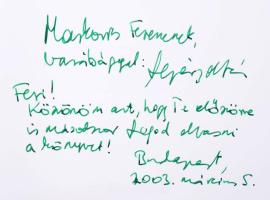 Markovits Ferencnek,
barátsággal:
Feri!
Köszönöm azt, hogy Te először
és másodszor fogod olvasni
a könyvet!
Budapest,
2003. március 5.